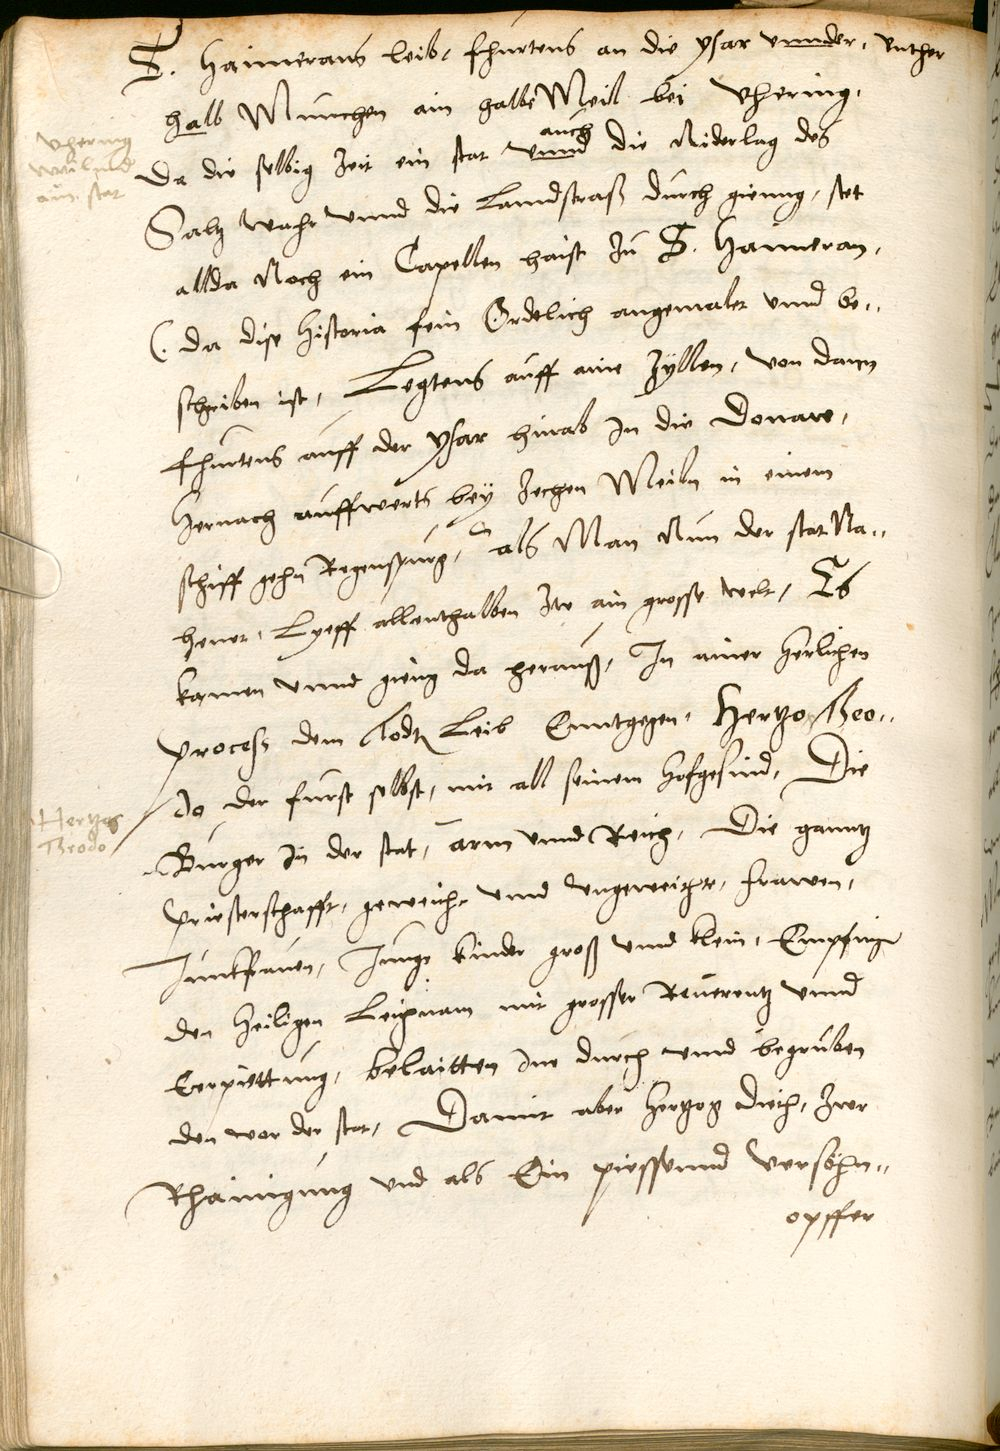 S. Haimerans leib, fhurtens an die ysar unnder, unther
halb Munchen ain halbe Meil bei Vhering,
Vhering
weiland
ain stat
auch
Da die selbig Zeit ein stat unnd die Niderlag des
Saltz wahr unnd die Landstrass durch gienng, stet
allda Noch ein Capellen haist Zu S. Haimeran,
(. da dise Historia fein Ordelich angemalet unnd be„
schriben ist, Legtens auff aine Zyllen, von dann
fhurtens auff der ysar hinab In die Donaw,
Hernach auffwerts bey Zechen Meiln in einem
schiff gehn Regenspurg, als Man Nun der stat Na„
hener, Lyeff allenthalben Zw ain grosse welt, Es
kamen unnd gieng da herauß, In ainer herlichen
Process dem Todtn Leib Enntgegen, Hertzog Theo„
do der furst selbst, mit all seinem hofgesind, Die
Hertzog
Theodo
Burger In der stat, arm unnd Reich, Die ganntz
Priesterschafft, geweicht unnd ungeweichte, frawen,
Junkfrauen, Junge kinder groß unnd klein, Empfinge
den heiligen Leichnam mit grosser Reuerentz unnd
Eerpiettung, belaitten Ine durch unnd begruben
den vor der stat, Damit aber Hertzog Dieth, Zwr
Rhainigung und als Ein piessennd versöhn„
opffer